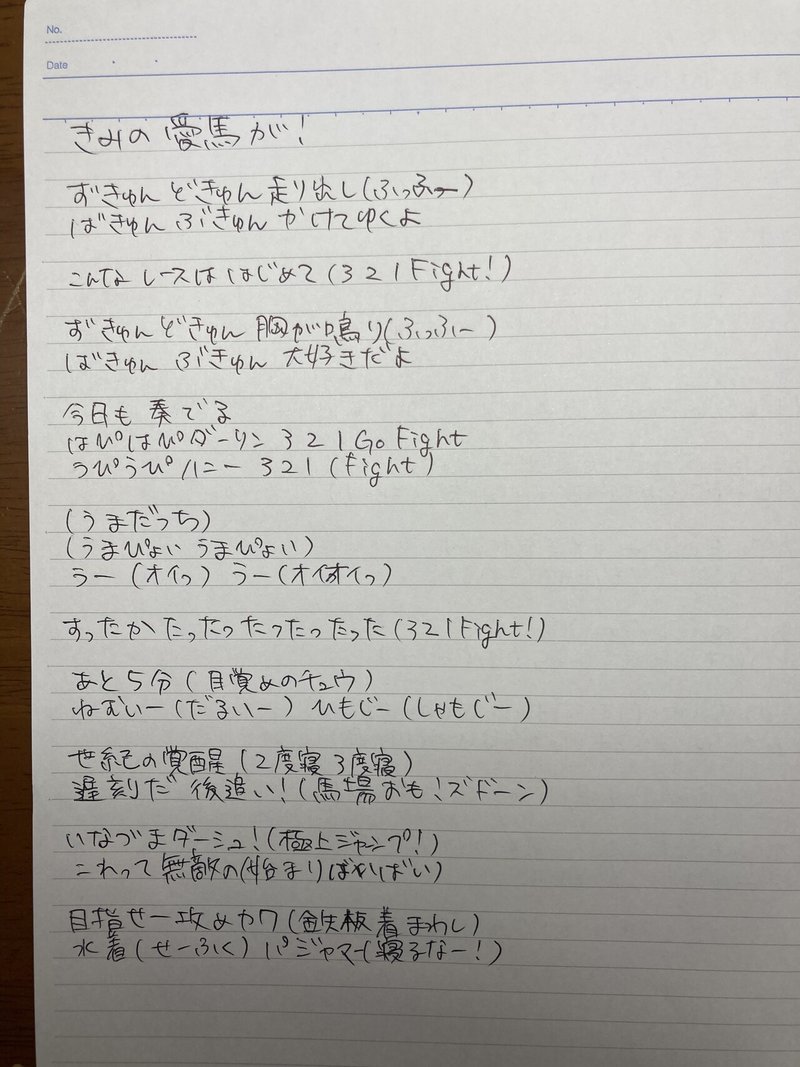 No.
Date
きみの愛馬が!
ずきゅん どきゅん 走り出し(ふっふー)
ばきゅん ぶきゅん かけてゆくよ
こんな レースは はじめて(321Fight!)
ずきゅん どきゅん 胸が鳴り(ふっふー)
ばきゅん ぶきゅん 大好きだよ
今日も 奏でる
はぴはぴダーリン 321 Go Fight
うぴうぴハニー 321 (Fight)
(うまだっち)
(うまぴょい うまぴょい)
うー (オイっ) うー(オイオイっ)
すったか たったっ たったったった(321Fight!)
あと5分 (目覚めのチュウ)
ねむいー(だるいー) ひもじー(しゃもじー)
世紀の覚醒 (2度寝 3度寝)
遅刻だ 後追い!(馬場おも!ズドーン)
いなづまダーシュ!(極上ジャンプ!)
これって無敵の(始まり)ばかばい)
目指せ一攻めカワ(鉄板着まわし)
水着(せーふく) パジャマー(寝るなー!)